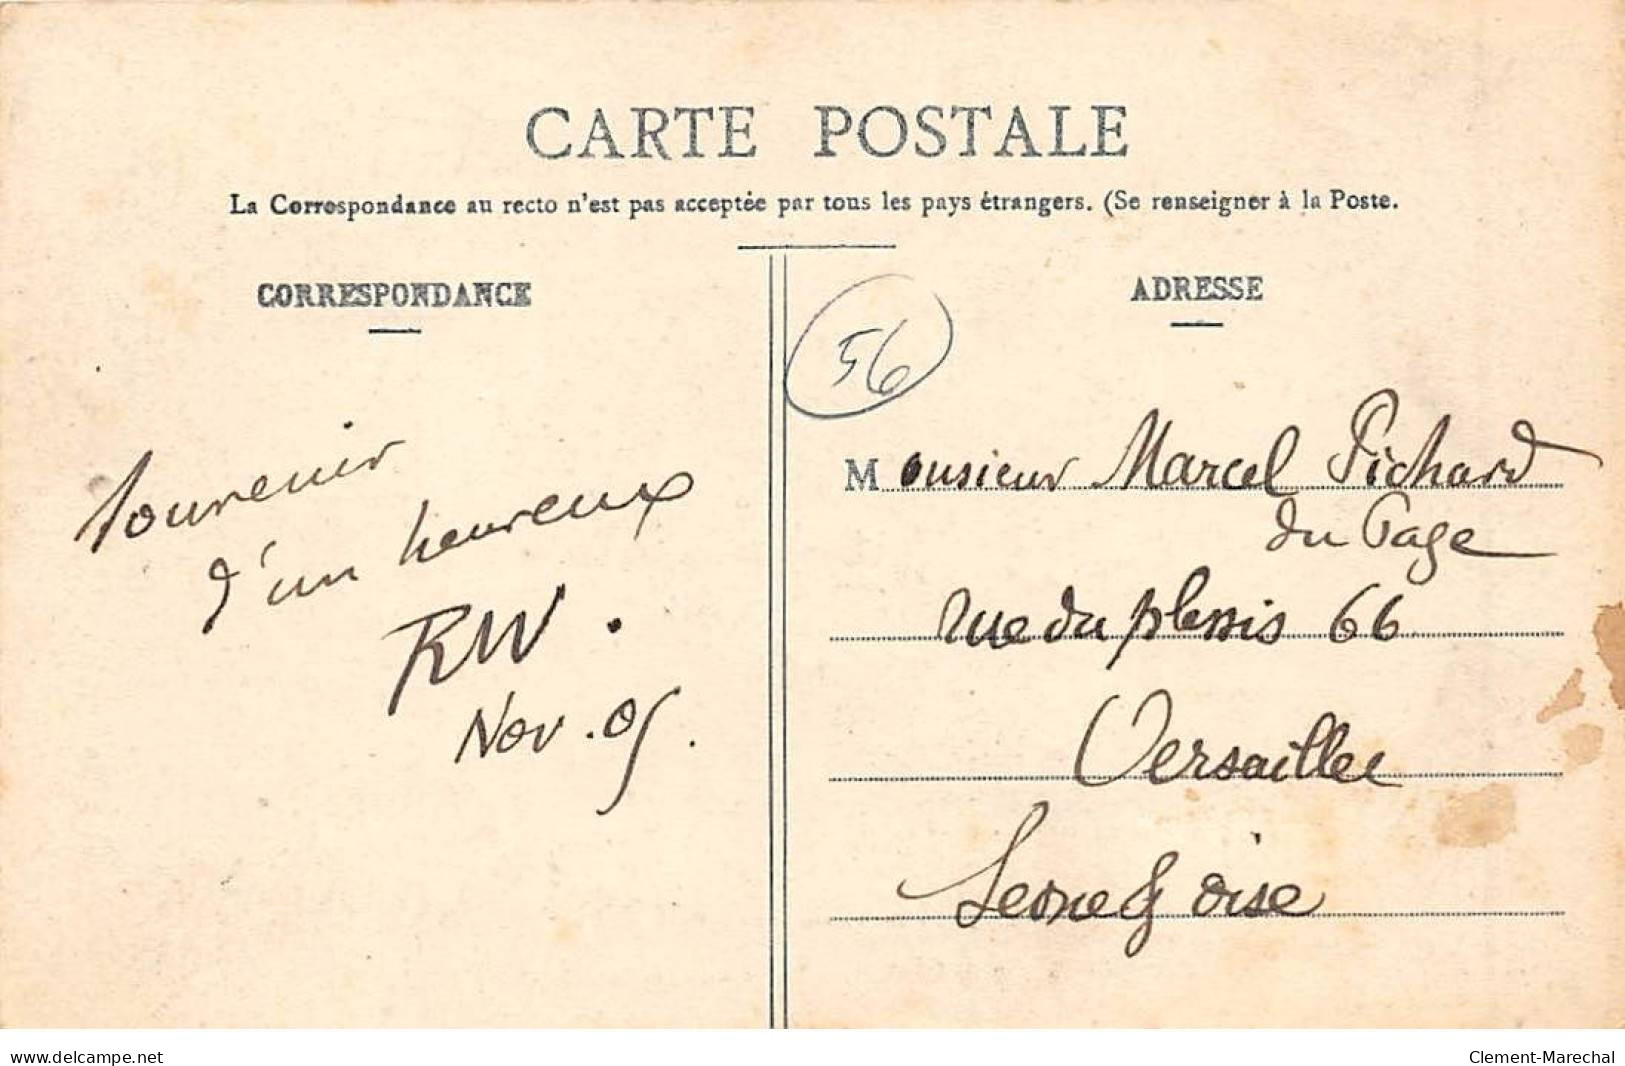 CARTE POSTALE
La Correspondance au recto n'est pas acceptée par tous les pays étrangers. (Se renseigner à la Poste.
CORRESPONDANCE
Souvenir
d'un heureux
RW.
Nov. 05.
ADRESSE
56
Monsieur Marcel Pichard
du Page
rue du plessis 66
Versailles
Seine & Oise
www.delcampe.net
Clement-Marechal